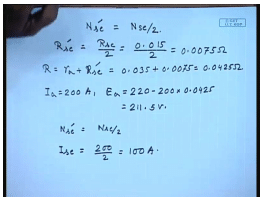 Nsé = Nse/2.
Rsé = Rse/2 = 0.015/2 = 0.0075Ω
R = ra + Rsé = 0.035 + 0.0075 = 0.0425Ω
Ia = 200 A, Ea = 220 - 200 x 0.0425
= 211.5 V.
Nsé = Nse/2
Ise = 200/2 = 100 A.